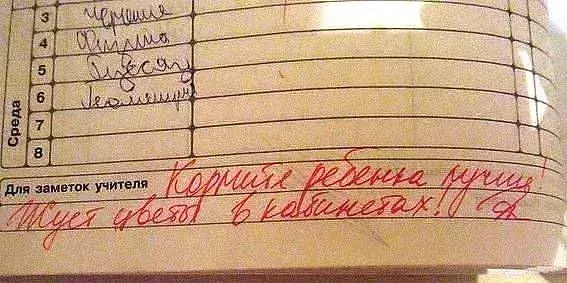 3 черчение
4 Физика
5 Русский
6 Геометрия
Среда
7
8
Для заметок учителя Кормите ребенка лучше!
Жует цветы в кабинетах!